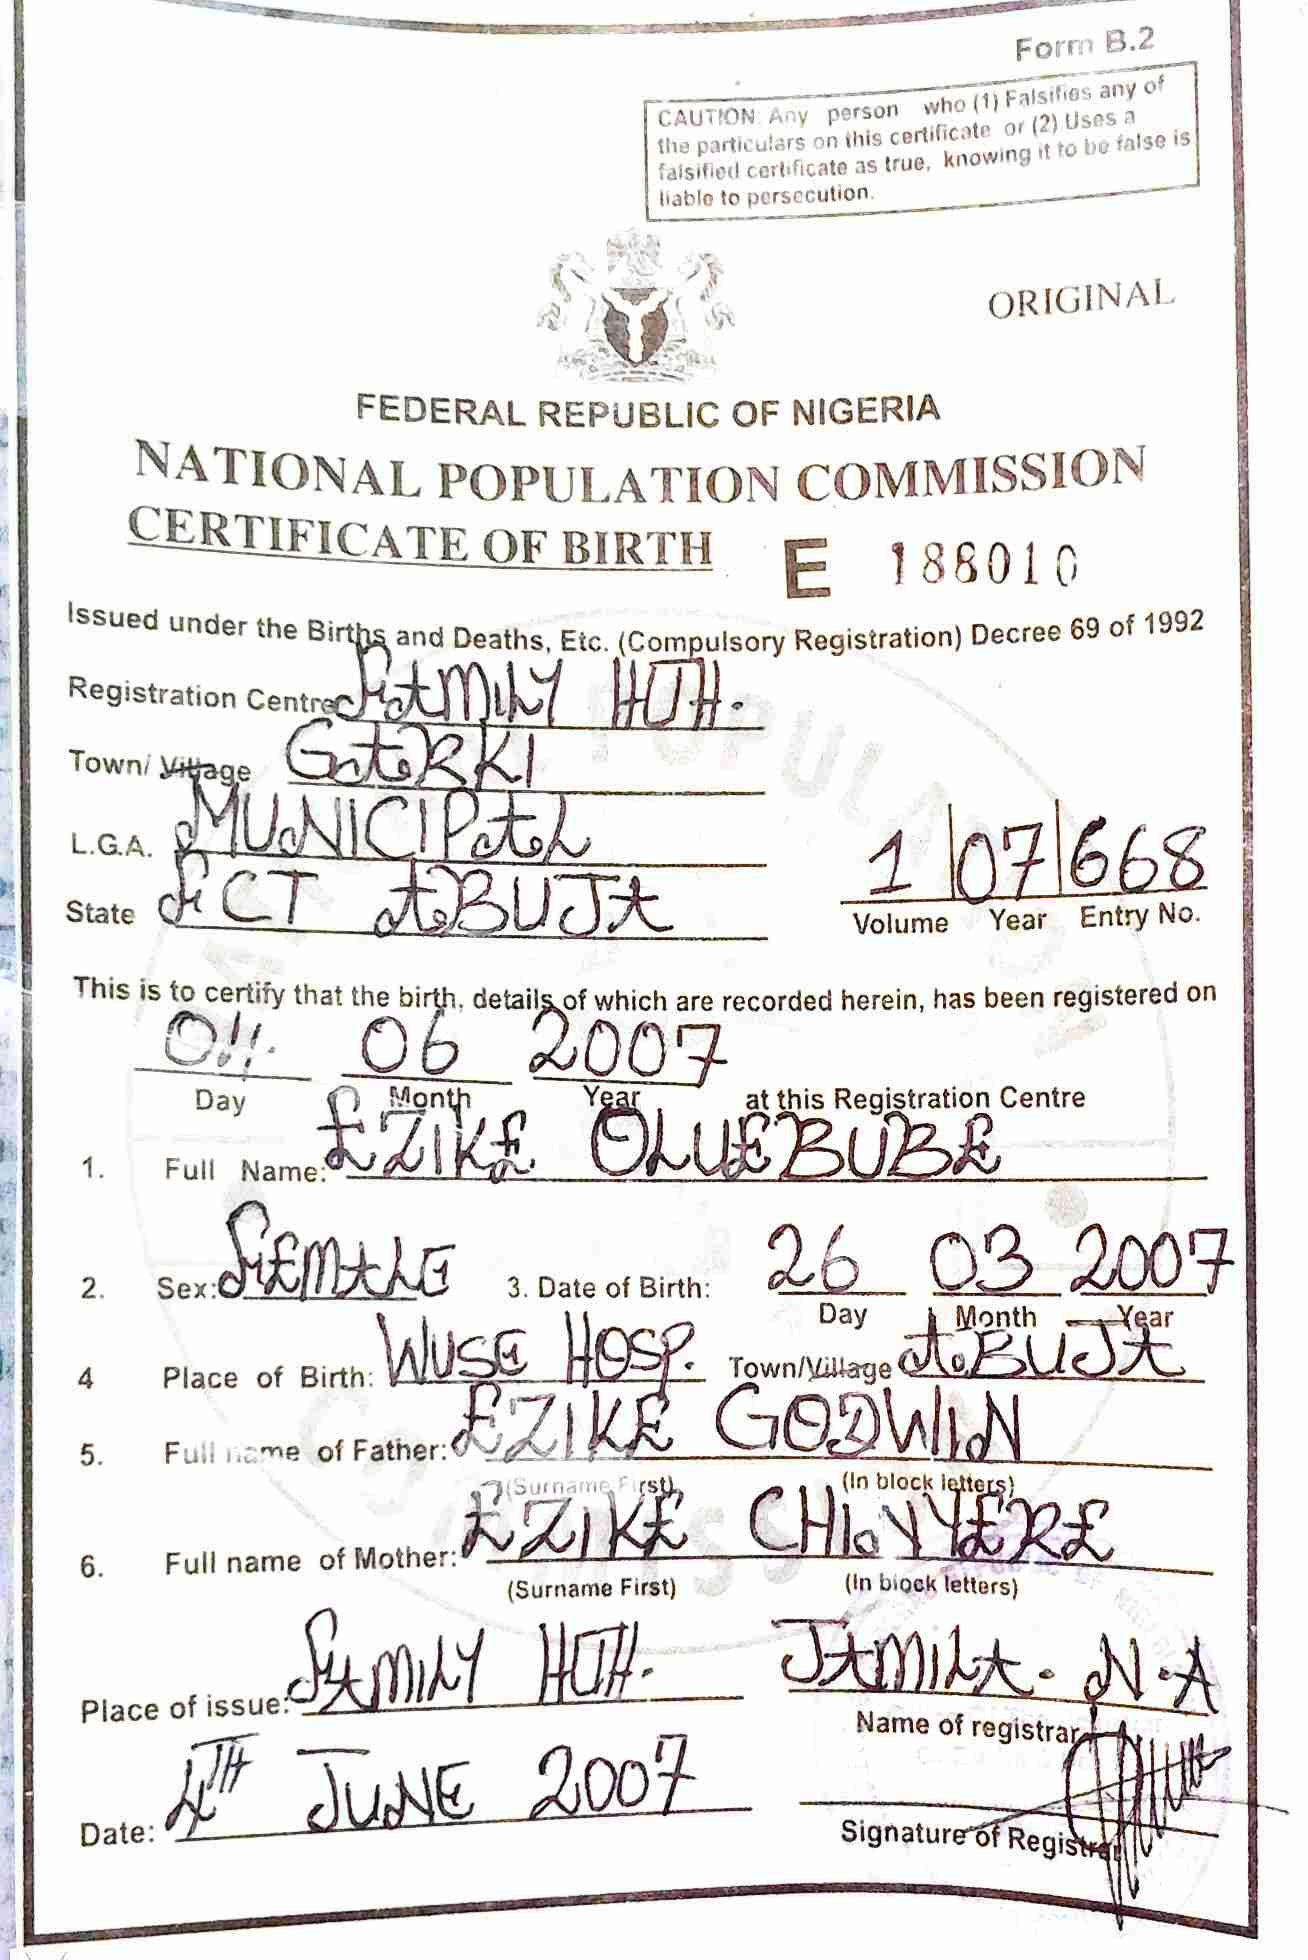 Form B.2
CAUTION: Any person who (1) Falsifies any of
the particulars on this certificate or (2) Uses a
falsified certificate as true, knowing it to be false is
liable to persecution.
ORIGINAL
FEDERAL REPUBLIC OF NIGERIA
NATIONAL POPULATION COMMISSION
CERTIFICATE OF BIRTH E 188010
Issued under the Births and Deaths, Etc. (Compulsory Registration) Decree 69 of 1992
Registration Centre FAMILY HTH.
Town/ Village GARKI
L.G.A. MUNICIPAL
State FCT ABUJA
1 07 668
Volume Year Entry No.
This is to certify that the birth, details of which are recorded herein, has been registered on
06 2007
Day Month Year at this Registration Centre
1. Full Name: EZIKE OLUEBUBE
2. Sex: FEMALE 3. Date of Birth: 26 03 2007
Day Month Year
4 Place of Birth: WUSE HOSP. Town/Village ABUJA
5. Full name of Father: EZIKE GODWIN
(Surname First) (In block letters)
6. Full name of Mother: EZIKE CHINYERE
(Surname First) (In block letters)
Place of issue: FAMILY HTH. JAMILA. N.A
Name of registrar
Date: 4TH JUNE 2007
Signature of Registrar